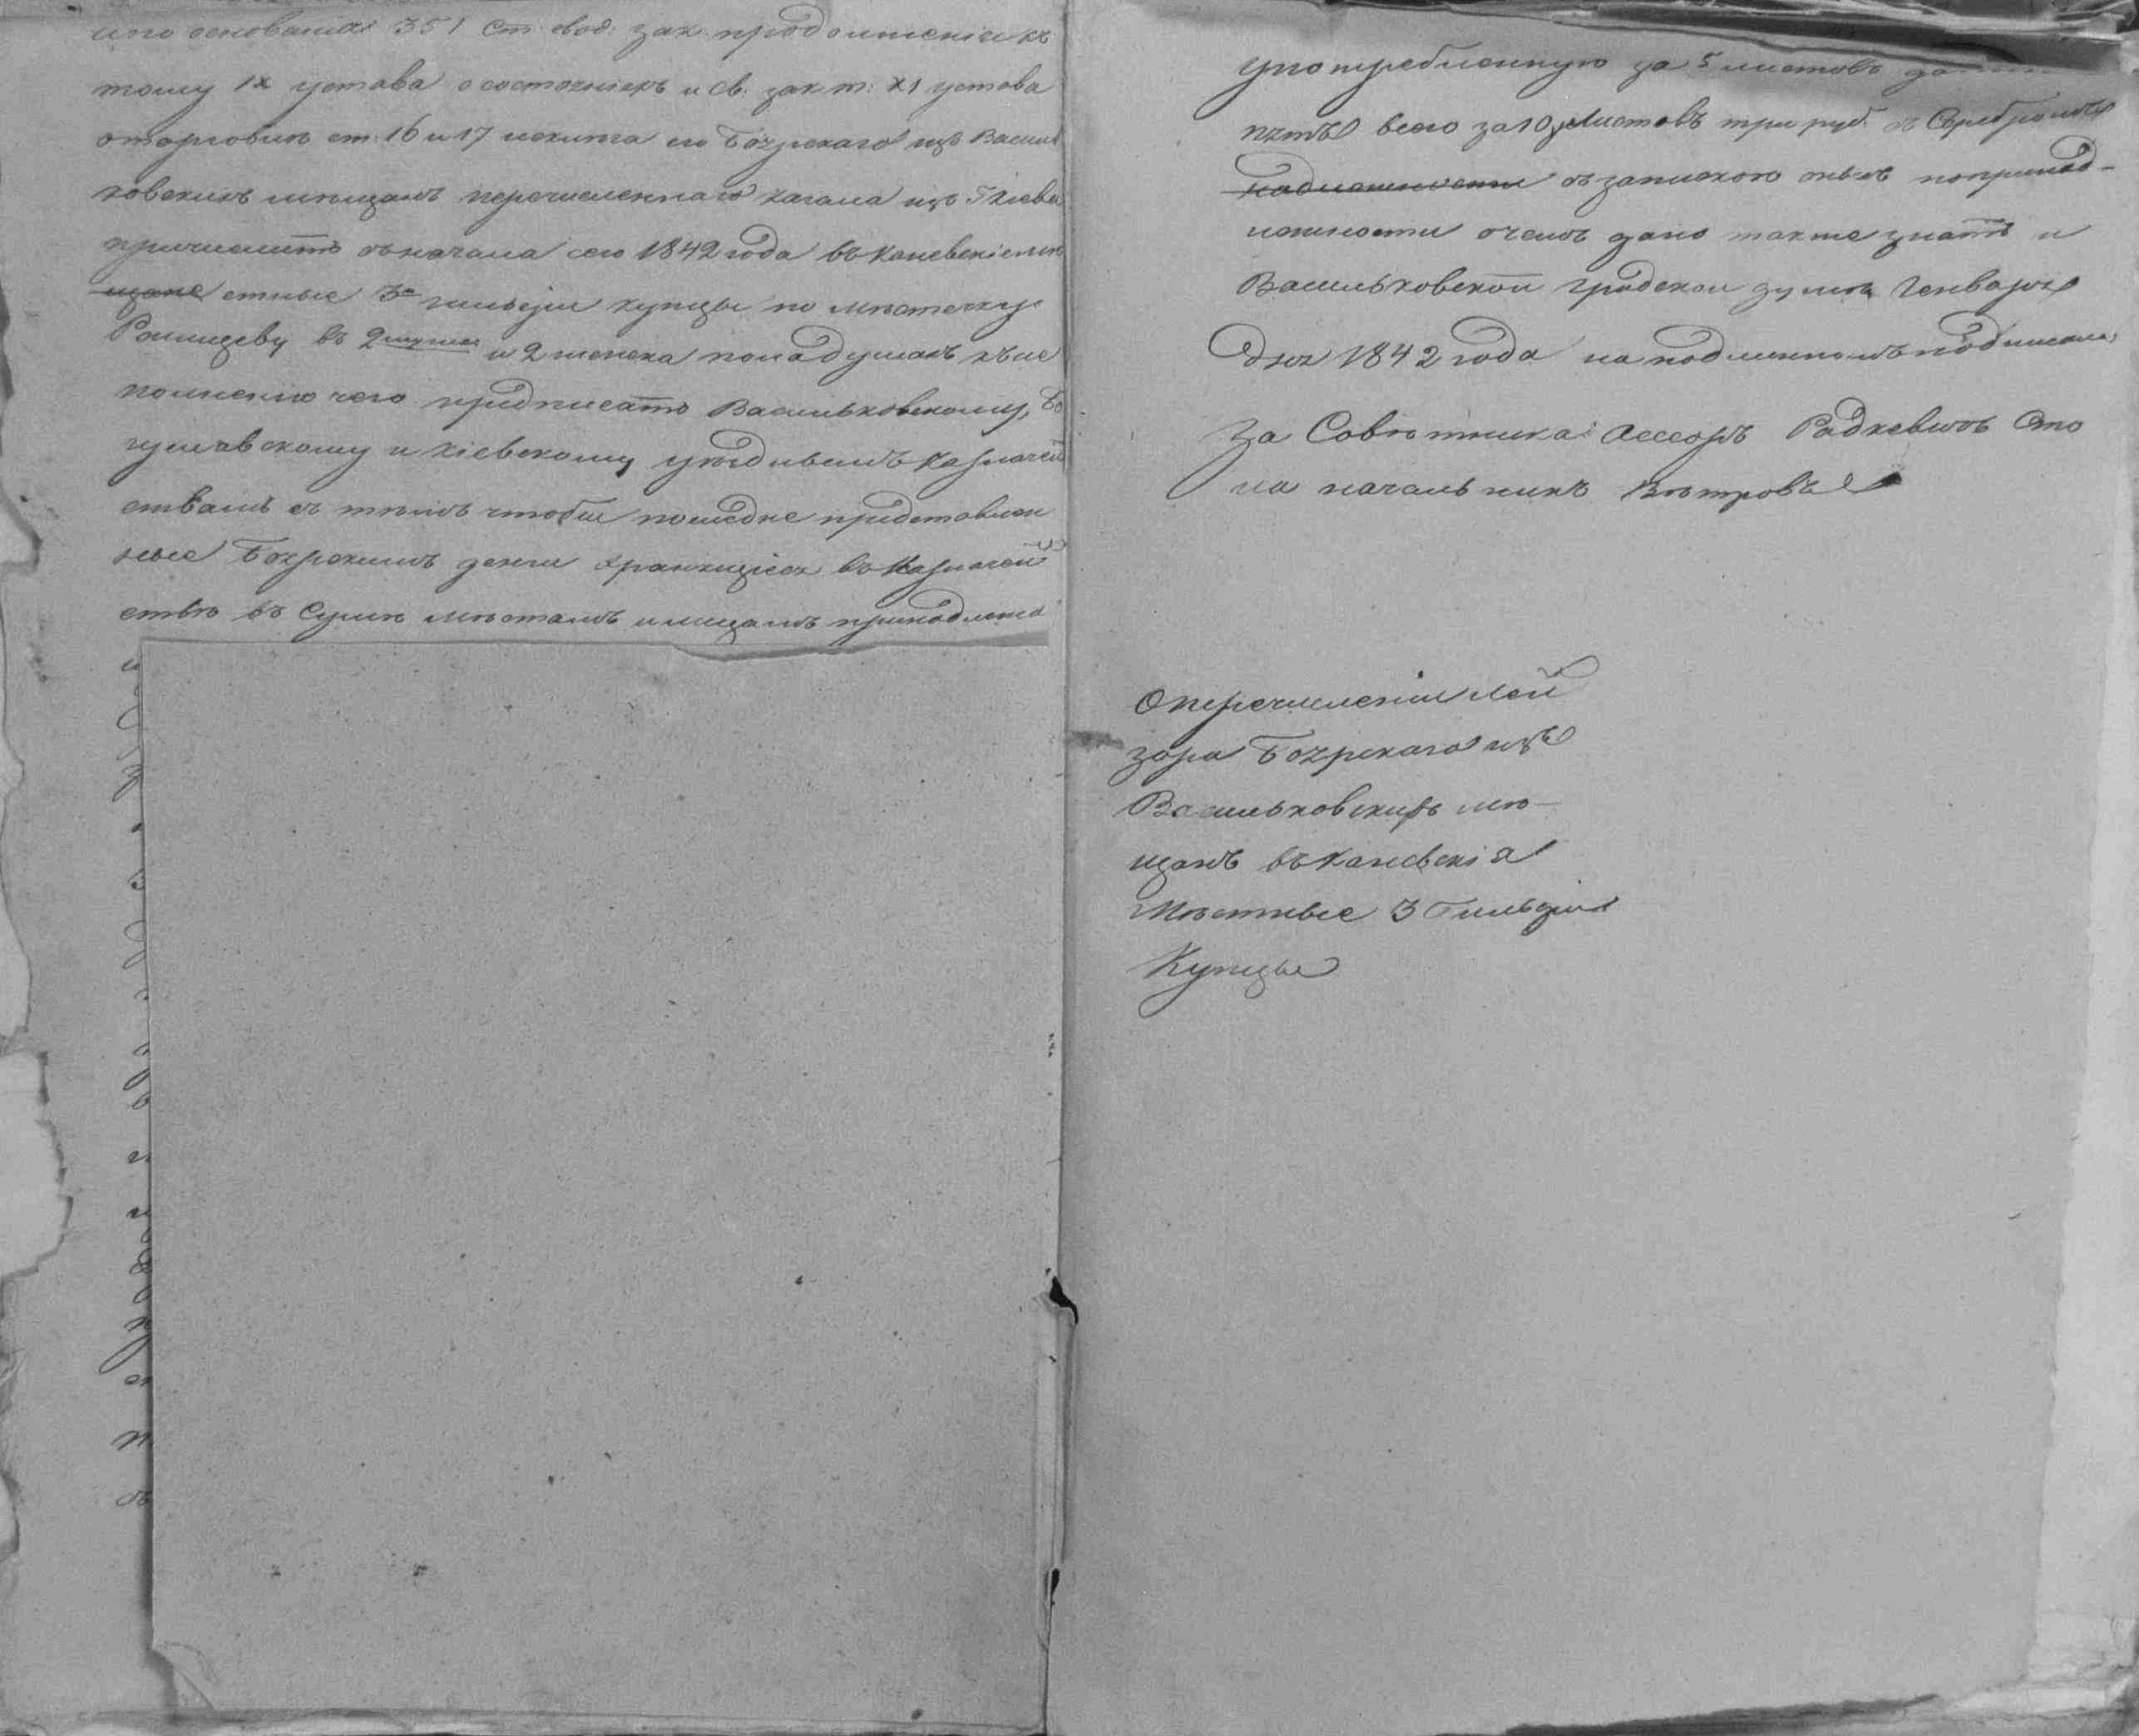 и по основанія 351 ст. свод. зак. продолженіи къ
тому IX устава о состояніяхъ и св. зак. т: XI устава
о торговлѣ ст: 16 и 17 исключа его Боярскаго изъ Василь
ковскихъ мѣщанъ перечисленнаго кагала изъ Кіева
причислить съ начала сего 1842 года въ каневскіе мѣ
щане стные 3й гильдіи купцы по мѣстечку
въ 2 мужес и 2 женска пола душахъ къ ис
полненію чего предписать Васильковскому, Бо
гуславскому и кіевскому уѣзднымъ казначей
ствамъ съ тѣмъ чтобы послѣдне представлен
ные Боярскимъ денги хранящіеся въ казначей
ствѣ въ Сумѣ мѣстамъ и лицамъ принадлежа
употребленную за 5 листовъ
пять всего за 10 листовъ три руб. съ Серебромъ
надлежности съ запискою оныхъ попринад-
лежности о чемъ дано также знать и
Васильковской градской думѣ Генваря
дня 1842 года на подлинномъ подписали
За Совѣтника: Ассесоръ Радкевичъ Сто
ла начальникъ Вѣтровъ
О перечисленіи Лей
зора Боярскаго изъ
Васильковскихъ мѣ-
щанъ въ каневскія
Мѣстные 3 Гильдіи
Купцы